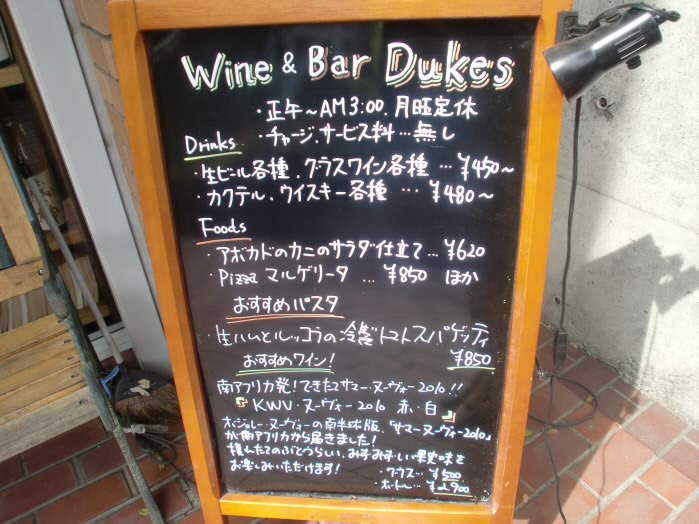 Wine & Bar Dukes
・正午～AM3:00. 月曜定休
・チャージ.サービス料…無し
Drinks
・生ビール各種.グラスワイン各種 … ¥450～
・カクテル.ウイスキー各種 … ¥480～
Foods
・アボカドのカニのサラダ仕立て… ¥620
・Pizza マルゲリータ … ¥850 ほか
おすすめパスタ
・生ハムとルッコラの冷製トマトスパゲッティ
¥850
おすすめワイン!
南アフリカ発!できたてサマーヌーヴォー2010!!
『KWV・ヌーヴォー2010 赤・白』
ボジョレーヌーヴォーの南半球版、「サマーヌーヴォー2010」
が南アフリカから届きました!
摘んだてのぶどうらしい、みずみずしい果実味を
お楽しみいただけます!
・グラス… ¥500
・ボトル… ¥2,900